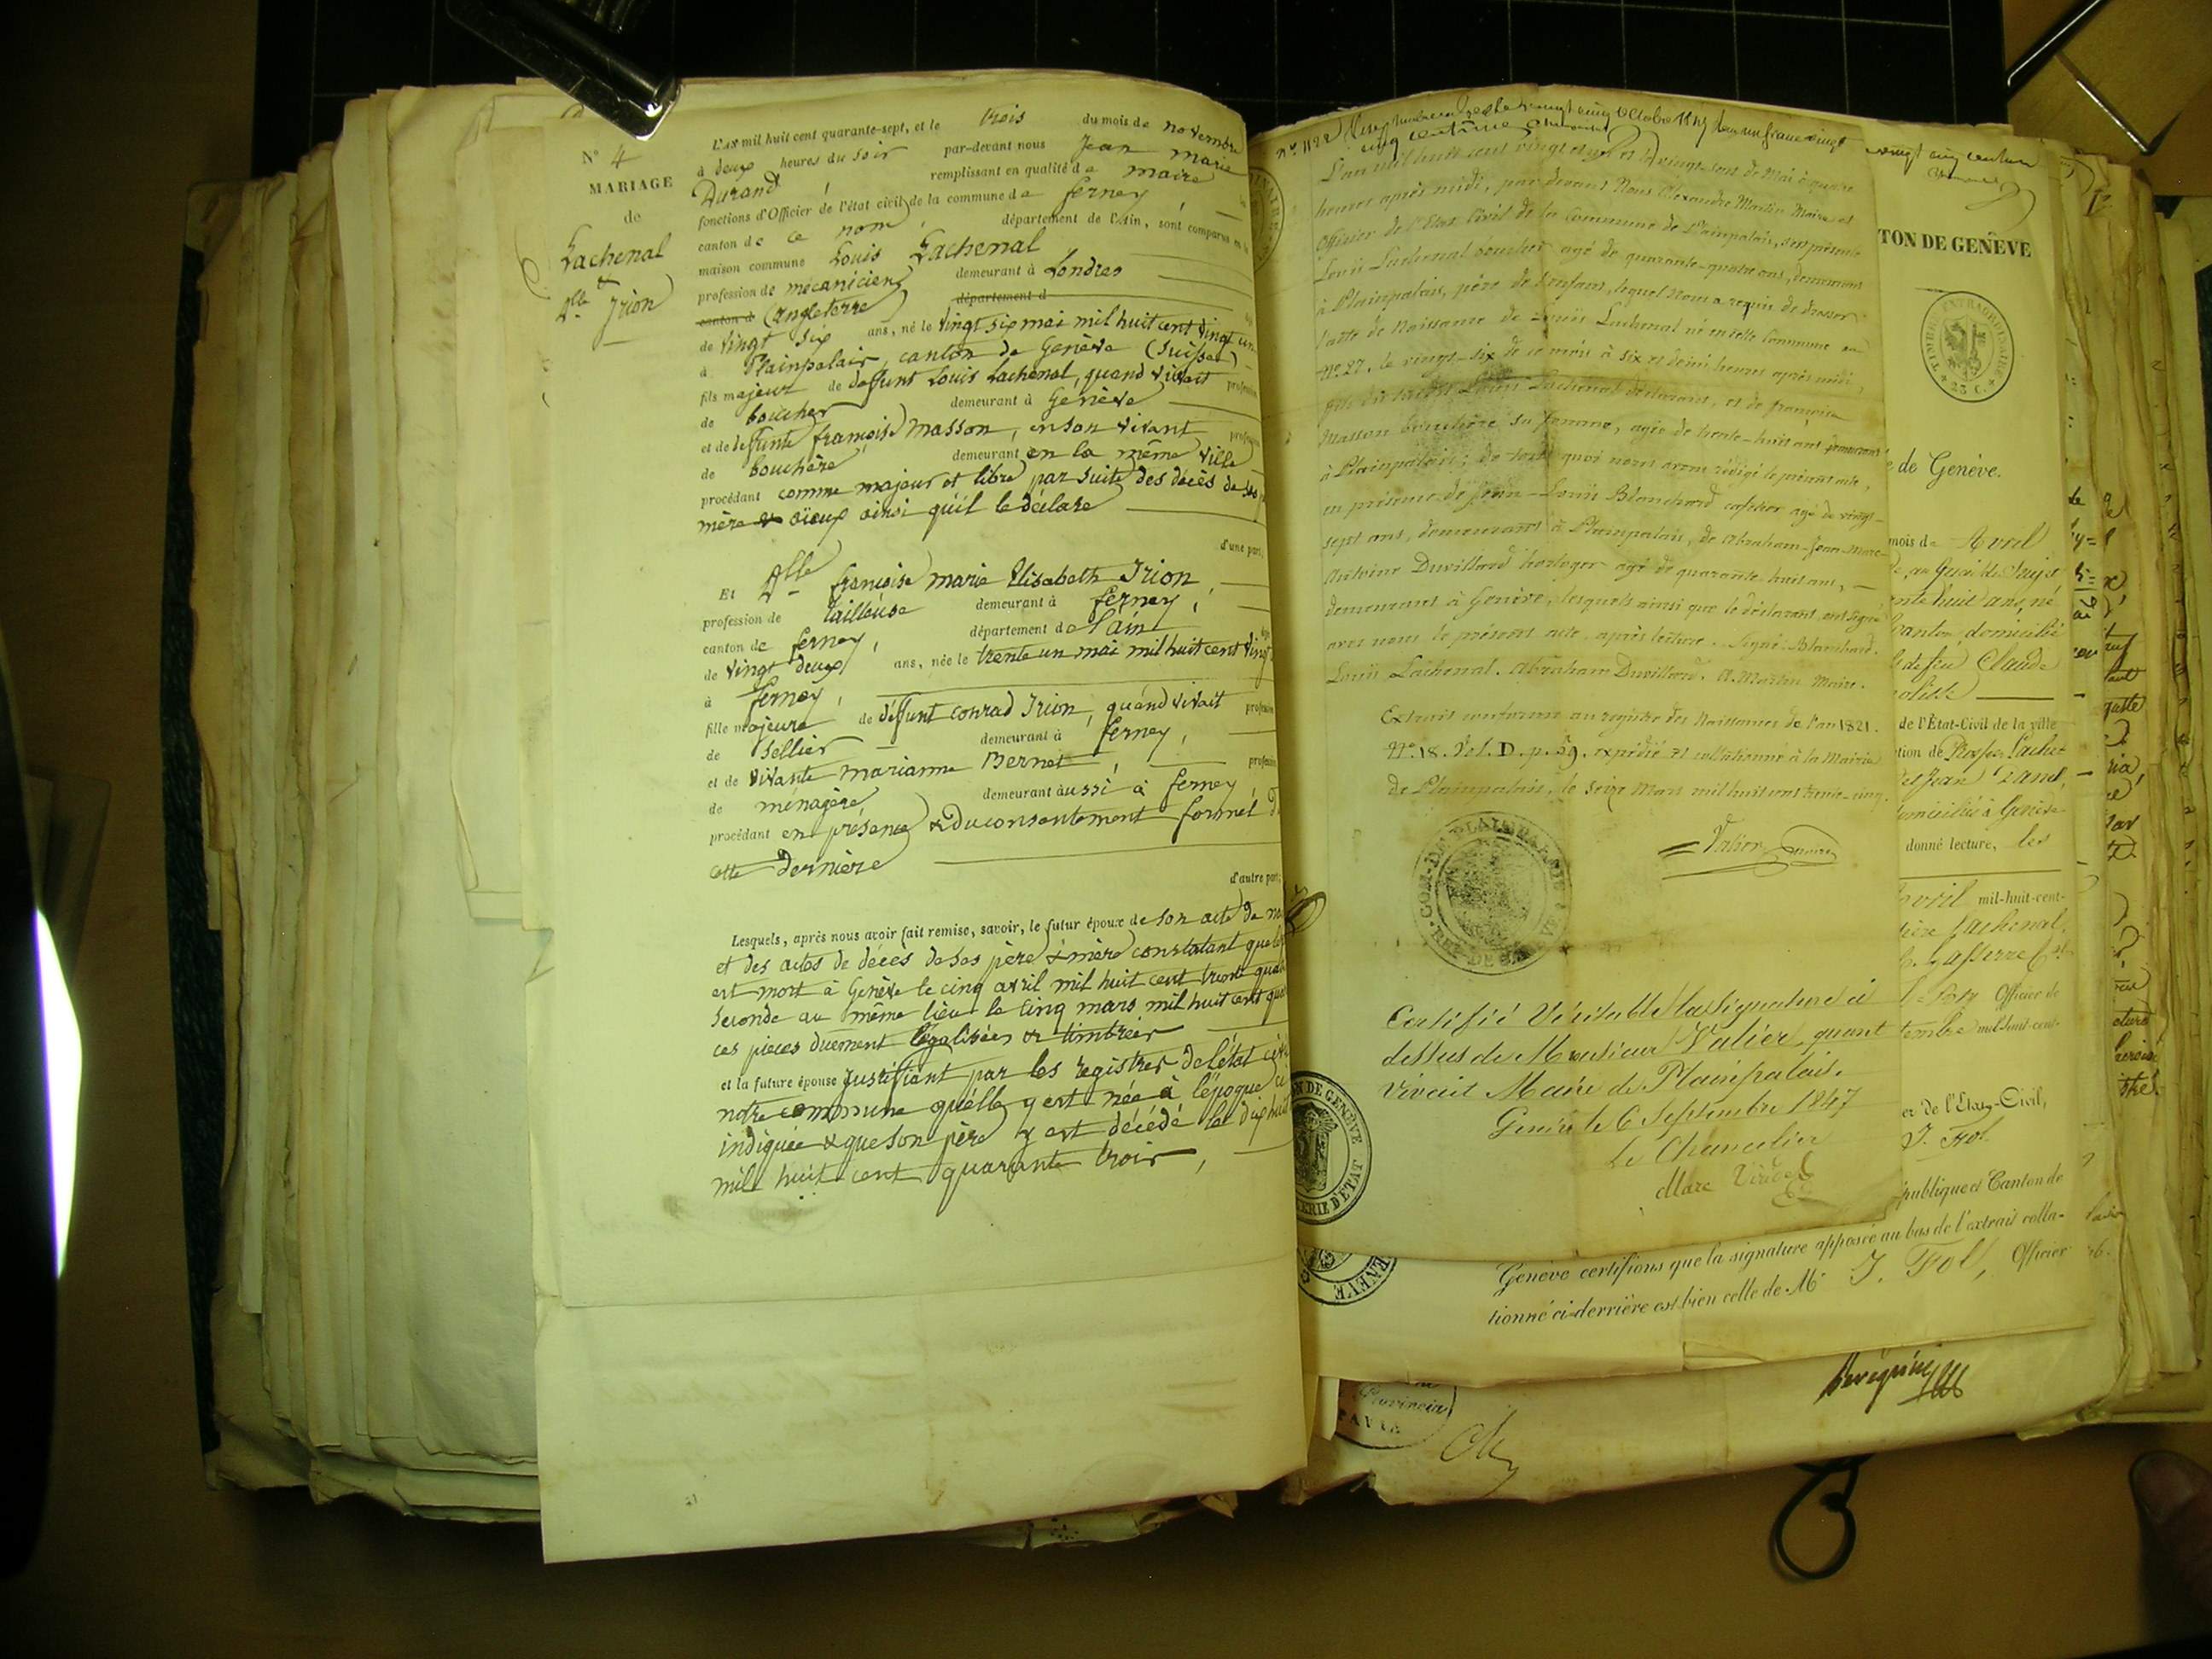 N° 4
MARIAGE
de
Lachenal
&
Dlle Irion
L'AN mil huit cent quarante-sept, et le trois du mois de novembre
à deux heures du soir par-devant nous Jean Marie
Durand remplissant en qualité de maire
fonctions d'Officier de l'état civil de la commune de ferney,
canton de ce nom, département de l'Ain, sont comparus en la
maison commune Louis Lachenal
profession de mécanicien demeurant à Londres
canton d (Angleterre) département d
de vingt six ans, né le vingt six mai mil huit cent vingt un
à Plainpalais, canton de Genève (Suisse)
fils majeur de deffunt Louis Lachenal, quand vivait profession
de boucher demeurant à Genève
et de deffunte françoise Masson, en son vivant profession
de bouchère demeurant en la même ville
procédant comme majeur et libre par suite des décès de ses
mère & aïeux ainsi qu'il le déclare
d'une part,
Et Dlle françoise marie Elisabeth Irion,
profession de tailleuse demeurant à ferney,
canton de ferney, département de l'ain
de vingt deux ans, née le trente un mai mil huit cent vingt
à ferney,
fille majeure de déffunt conrad Irion, quand vivait profession
de Sellier demeurant à ferney,
et de vivante marianne Bernet, profession
de ménagère, demeurant aussi à ferney,
procédant en présence & du consentement formel de
cette dernière
d'autre part;
Lesquels, après nous avoir fait remise, savoir, le futur époux de son acte de
et des actes de décès de ses père & mère constatant que le
est mort à Genève le cinq avril mil huit cent trente quatre
Seconde au même lieu le cinq mars mil huit cent
ces pièces duement légalisées & timbrées
et la future épouse justifiant par les registres de l'état
notre commune qu'elle y est née à l'époque ci
indiquée & que son père y est décédé le dix huit
mil huit cent quarante trois,
n° 1122 vingt cinq octobre 1847 un franc vingt
cinq centimes
L'an mil huit cent vingt et un et le vingt-sept de Mai à quatre
heures après midi, par devant Nous Alexandre Martin Maire et
Officier de l'Etat Civil de la Commune de Plainpalais, s'est présenté
Louis Lachenal boucher agé de quarante-quatre ans, demeurant
à Plainpalais, père de l'enfant, lequel Nous a requis de dresser
l'acte de Naissance de Louis Lachenal né en cette Commune au
N° 27, le vingt-six de ce mois à six et demi heures après midi,
fils du susdit Louis Lachenal déclarant, et de françoise
Masson bouchère sa femme, agée de trente-huit ans demeurant
à Plainpalais; de tout quoi nous avons rédigé le présent acte,
en présence de Jean-Louis Blanchard agé de vingt-
sept ans, demeurant à Plainpalais, de Abraham-Jean-Marc-
Antoine Duvillard horloger agé de quarante-huit ans,
demeurant à Genève, lesquels ainsi que le déclarant ont signé
avec nous le présent acte, après lecture. Signé. Blanchard.
Louis Lachenal. Abraham Duvillard. A. Martin Maire.
Extrait conforme au registre des Naissances de l'an 1821.
N° 18. Vol. D. p. 59. expédié et collationné à la Mairie
de Plainpalais, le seize Mars mil huit cent trente-cinq.
Valier, maire
COM. DE PLAINPALAIS
Certifié Véritable la signature ci
dessus de Monsieur Valier, quant
vivait Maire de Plainpalais.
Genève le 6 Septembre 1847
Le Chancelier
Marc Viridet
DE GENÈVE
ERIE D'ETAT
ENÈVE
vingt cinq centimes
TON DE GENÈVE
TIMBRE EXTRAORDINAIRE
25 C.
de Genève.
mois de Avril
ente huit ans, né
canton domicilié
de feu Claude
de l'État-Civil de la ville
tion de
domiciliés à Genève
donné lecture, les
avril mil-huit-cent-
Lachenal,
Officier de
tembre mil-huit-cent-
er de l'Etat-Civil,
J. Fol
publique et Canton de
Genève certifions que la signature apposée au bas de l'extrait colla-
tionné ci-derrière est bien celle de Mr J. Fol, Officier
Provincia
PAVIA